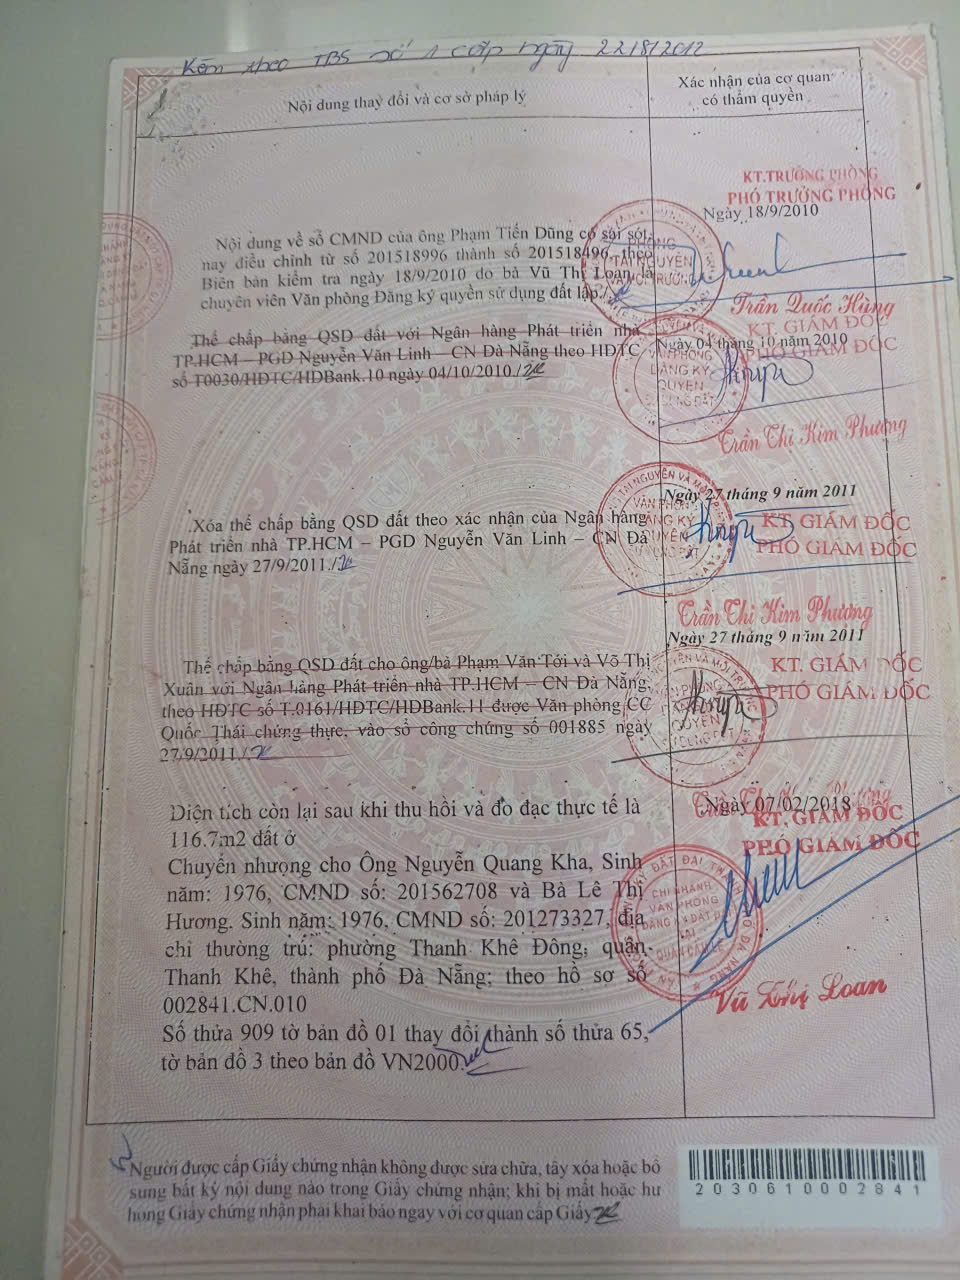 Kèm theo TBS số 1 cấp ngày 22/8/2012
Nội dung thay đổi và cơ sở pháp lý
Xác nhận của cơ quan
có thẩm quyền
KT.TRƯỞNG PHÒNG
PHÓ TRƯỞNG PHÒNG
Ngày 18/9/2010
Nội dung về số CMND của ông Phạm Tiến Dũng có sai sót,
nay điều chỉnh từ số 201518996 thành số 201518496 theo
Biên bản kiểm tra ngày 18/9/2010 do bà Vũ Thị Loan là
chuyên viên Văn phòng Đăng ký quyền sử dụng đất lập./
Trần Quốc Hùng
KT. GIÁM ĐỐC
PHÓ GIÁM ĐỐC
Thế chấp bằng QSD đất với Ngân hàng Phát triển nhà
TP.HCM – PGD Nguyễn Văn Linh – CN Đà Nẵng theo HĐTC
số T0030/HĐTC/HDBank.10 ngày 04/10/2010./
Ngày 04 tháng 10 năm 2010
Trần Thị Kim Phượng
Ngày 27 tháng 9 năm 2011
KT GIÁM ĐỐC
PHÓ GIÁM ĐỐC
Xóa thế chấp bằng QSD đất theo xác nhận của Ngân hàng
Phát triển nhà TP.HCM – PGD Nguyễn Văn Linh – CN Đà
Nẵng ngày 27/9/2011./
Trần Thị Kim Phương
Ngày 27 tháng 9 năm 2011
KT. GIÁM ĐỐC
PHÓ GIÁM ĐỐC
Thế chấp bằng QSD đất cho ông/bà Phạm Văn Tới và Võ Thị
Xuân với Ngân hàng Phát triển nhà TP.HCM – CN Đà Nẵng,
theo HĐTC số T.0161/HĐTC/HDBank.11 được Văn phòng CC
Quốc Thái chứng thực, vào sổ công chứng số 001885 ngày
27/9/2011./
Ngày 07/02/2018
KT. GIÁM ĐỐC
PHÓ GIÁM ĐỐC
Diện tích còn lại sau khi thu hồi và đo đạc thực tế là
116.7m2 đất ở
Chuyển nhượng cho Ông Nguyễn Quang Kha, Sinh
năm: 1976, CMND số: 201562708 và Bà Lê Thị
Hương. Sinh năm: 1976, CMND số: 201273327, địa
chỉ thường trú: phường Thanh Khê Đông, quận
Thanh Khê, thành phố Đà Nẵng; theo hồ sơ số
002841.CN.010
Số thửa 909 tờ bản đồ 01 thay đổi thành số thửa 65,
tờ bản đồ 3 theo bản đồ VN2000.
Vũ Thị Loan
Người được cấp Giấy chứng nhận không được sửa chữa, tẩy xóa hoặc bổ
sung bất kỳ nội dung nào trong Giấy chứng nhận; khi bị mất hoặc hư
hỏng Giấy chứng nhận phải khai báo ngay với cơ quan cấp Giấy
2030610002841